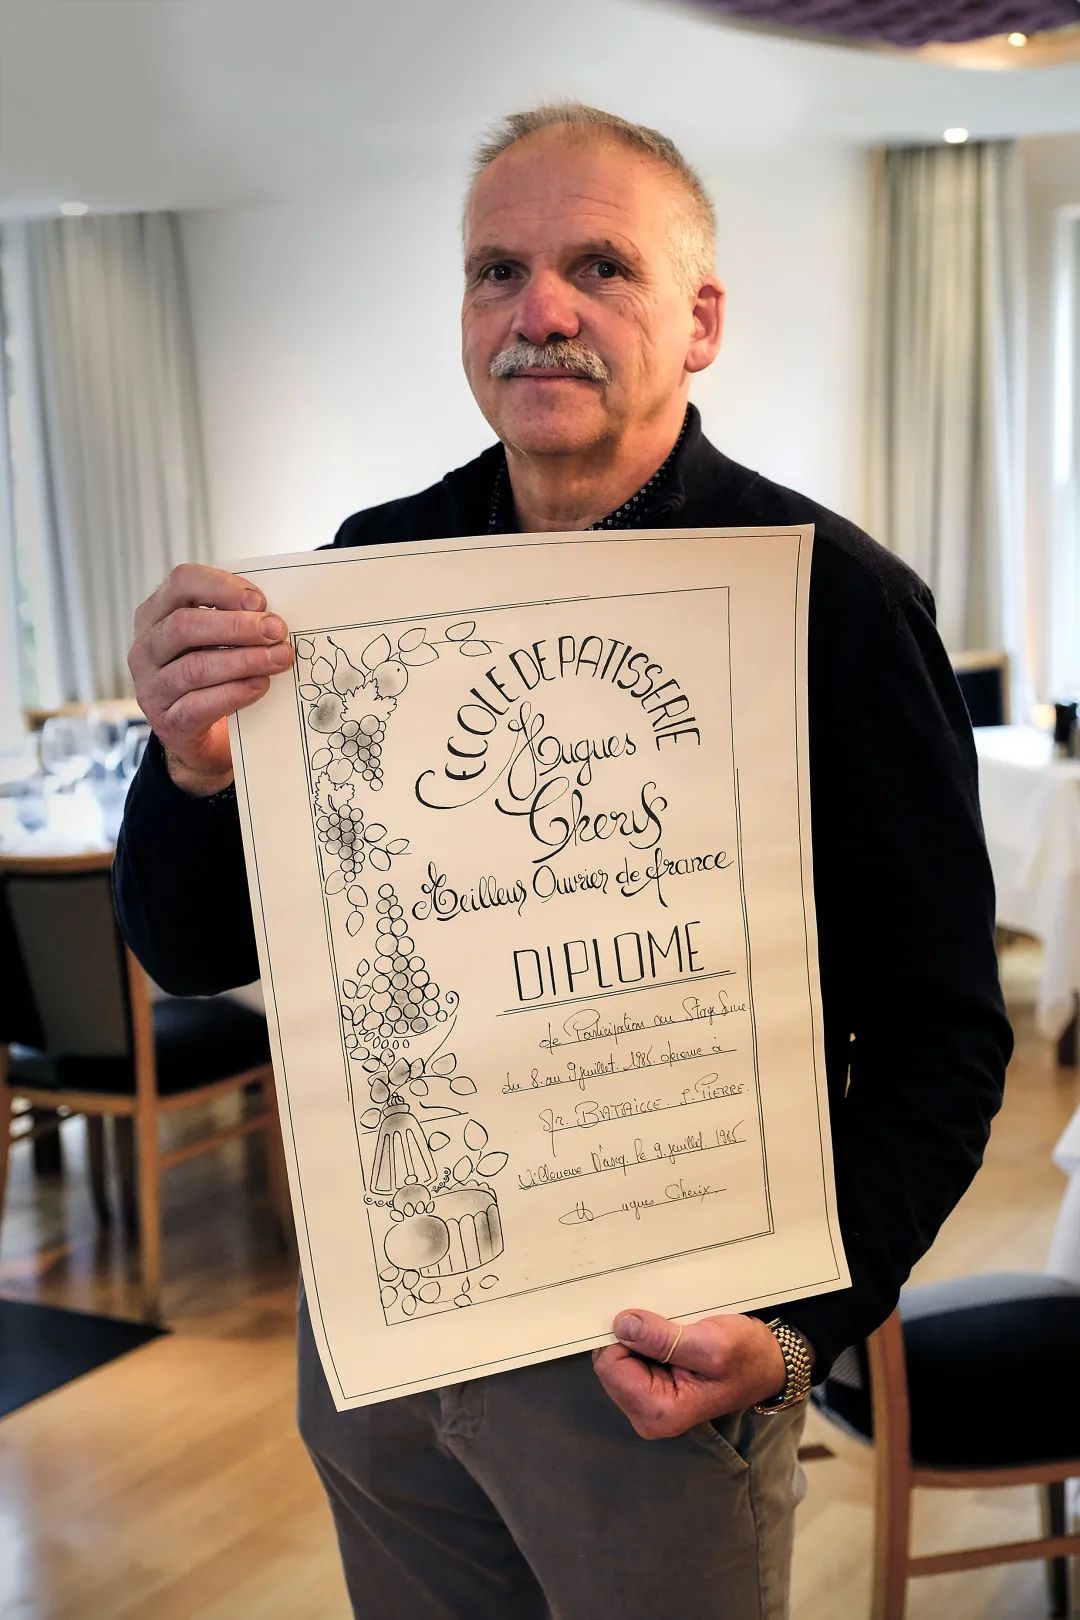 ECOLE DE PATISSERIE
Hugues
Cherix
Meilleur Ouvrier de france
DIPLOME
de Participation au Stage
du 8 au 9 juillet 1985 décerné à
Mr. BATAILLE J. PIERRE.
Villeneuve D'ascq, le 9 juillet 1985.
Hugues Cherix